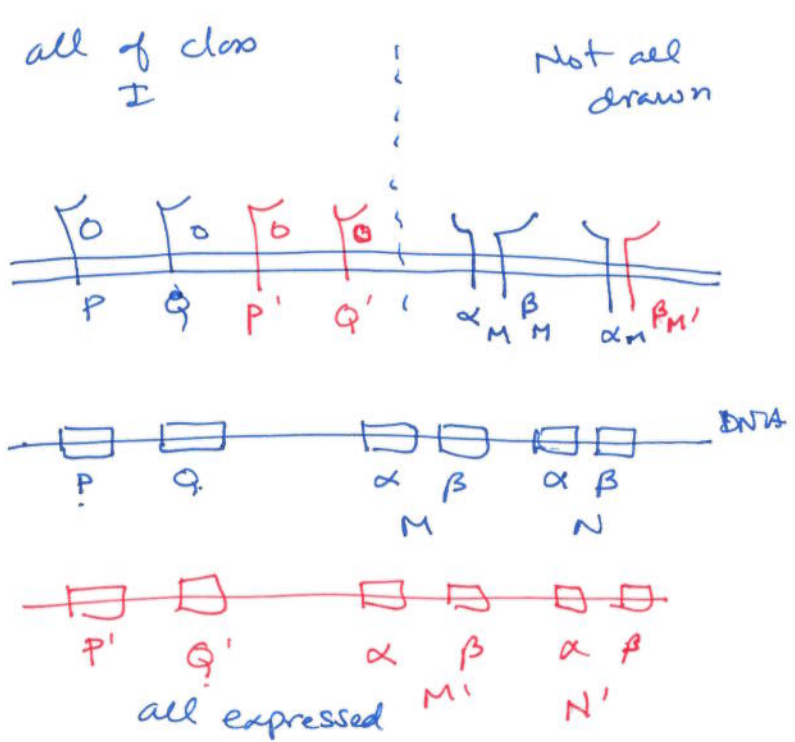 all of class
I
Not all
drawn
P Q P' Q' α M β M α M β M'
DNA
P Q α β α β
M N
P' Q' α β α β
M' N'
all expressed